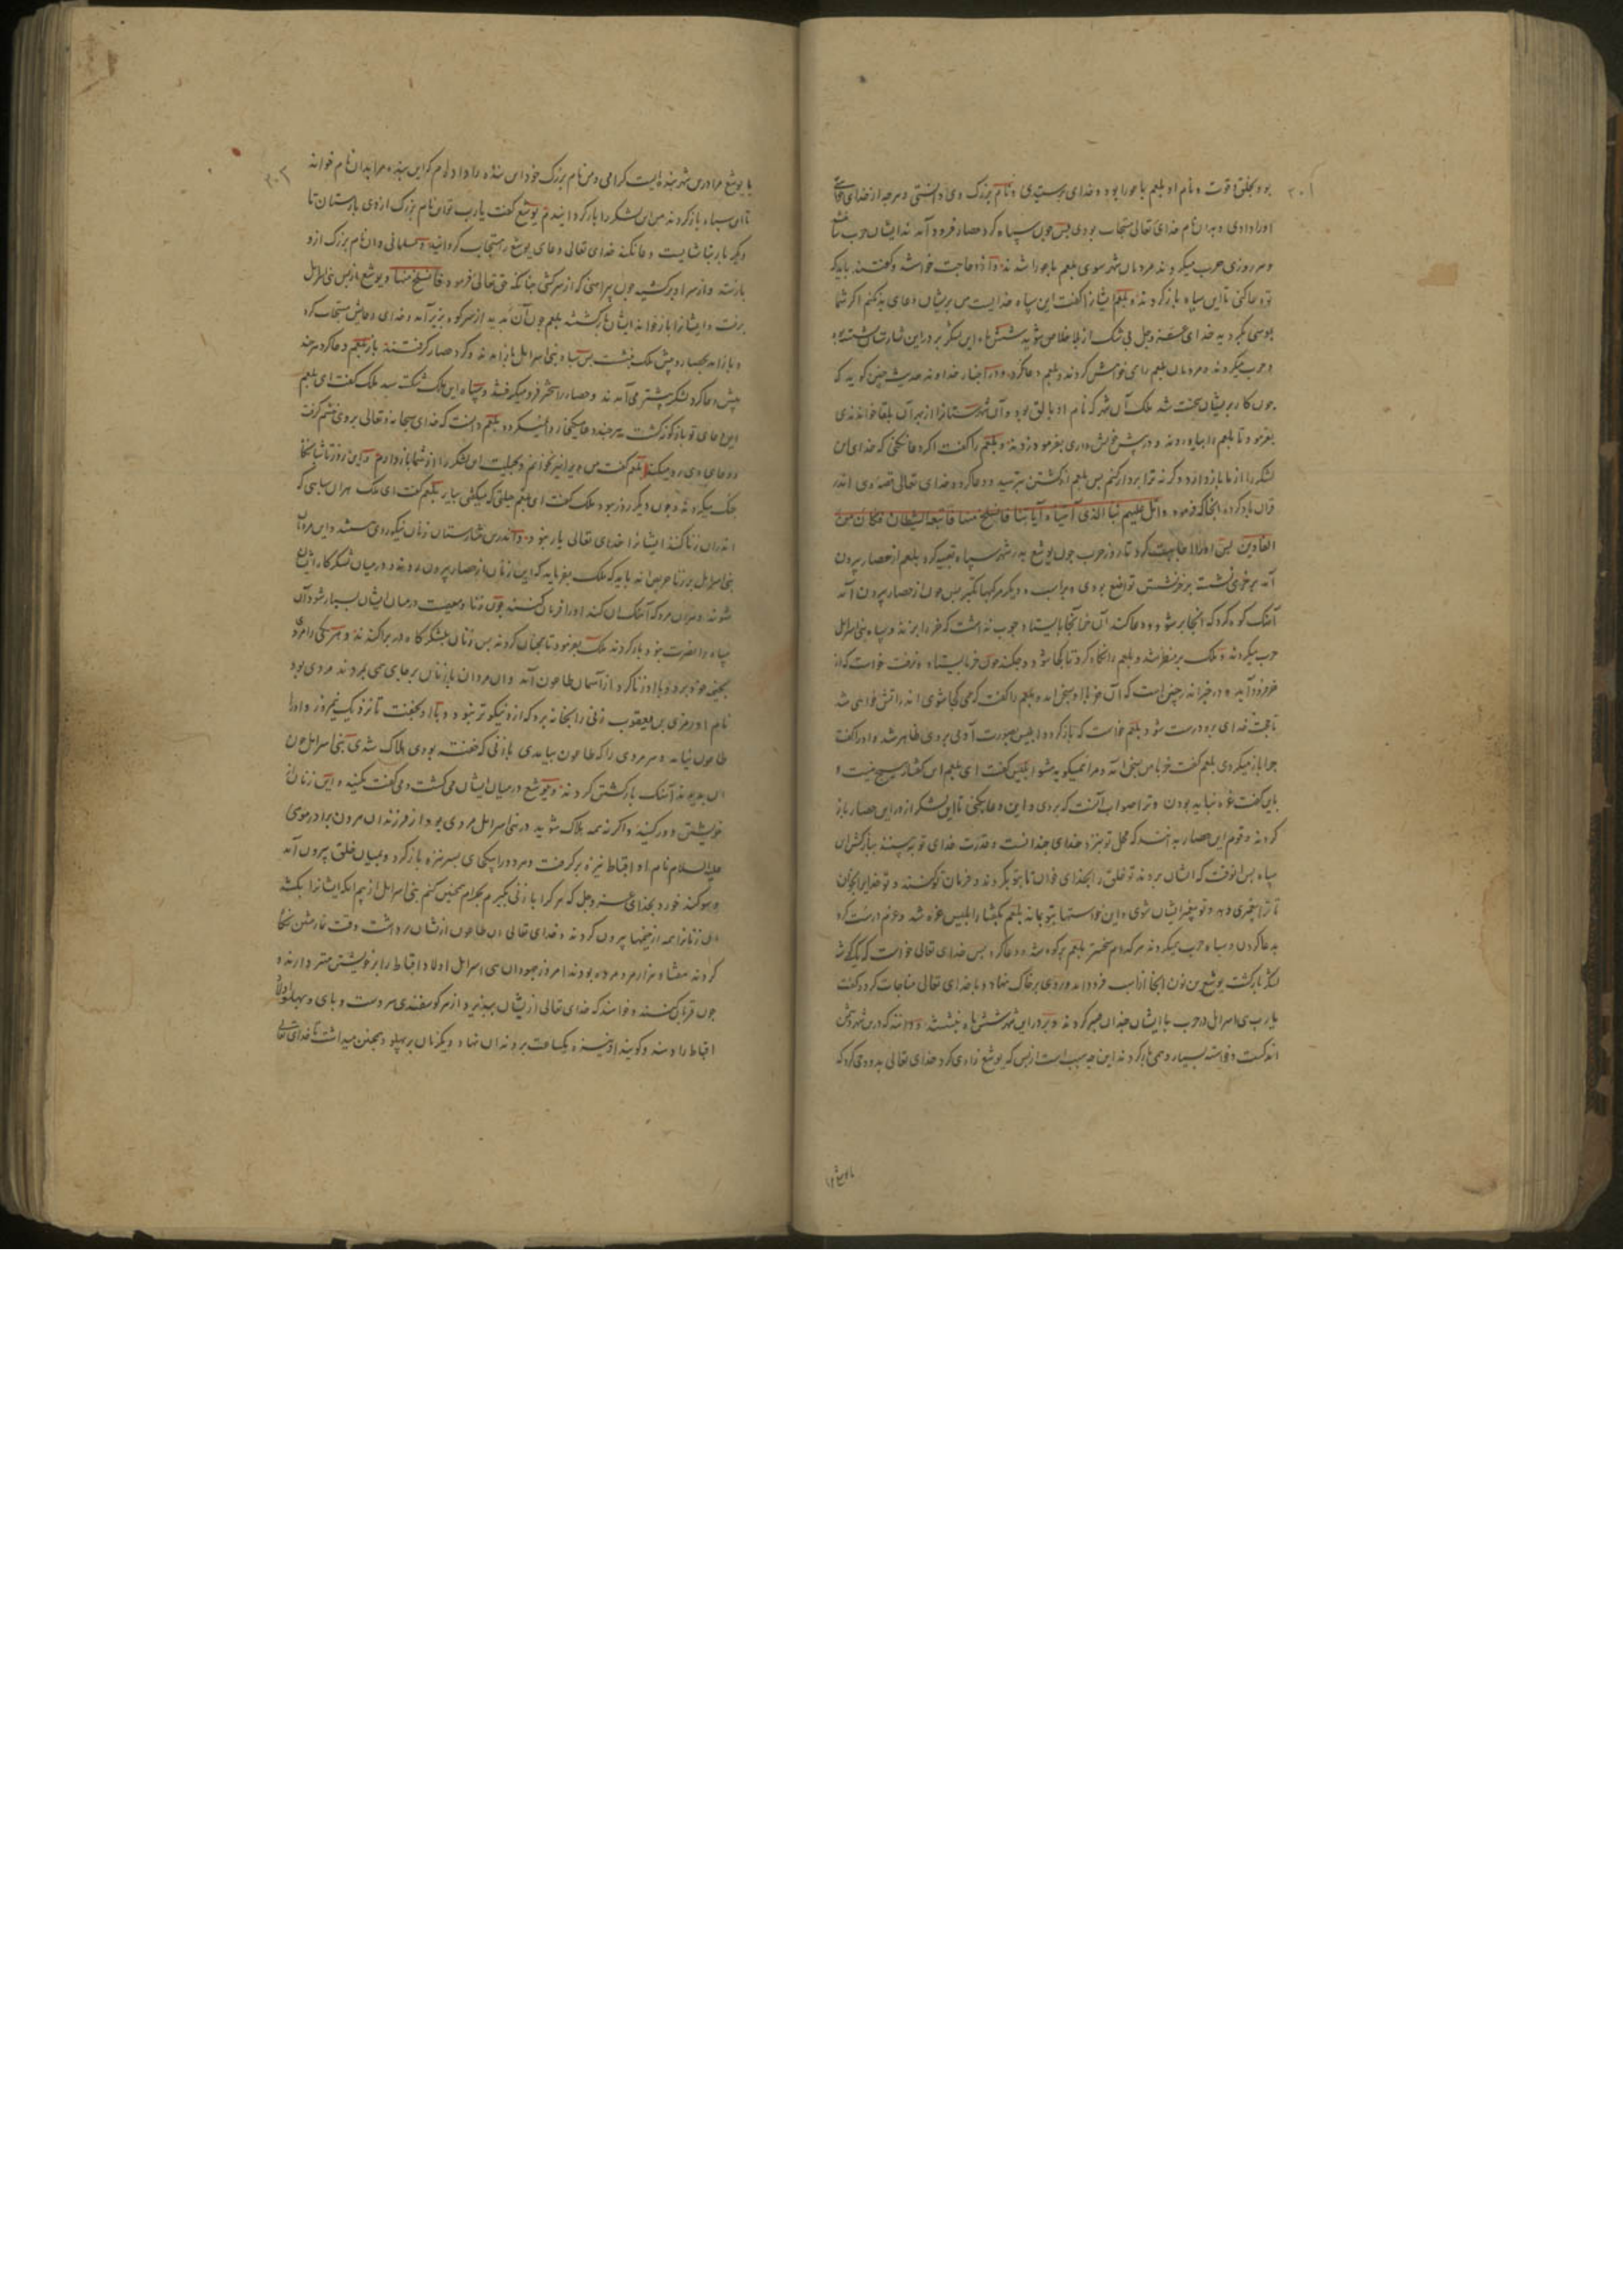 ۳۰۱
بود بخلق و قوت و نام او بلعم باعورا بود و خدای پرستیدی و نام بزرگ وی دانستی و هرچه از خدای
او را دادی و بدان نام خدای تعالی مستجاب بودی پس چون سپاه گرد حصار فرود آمدند ایشان حرب
و هر روزی حرب میکردند مردمان شهر سوی بلعم باعورا شدند و ازو حاجت خواستند و گفتند باید که
تو دعا کنی تا این سپاه باز گردند و بلعم ایشانرا گفت این سپاه خدایست من بریشان دعای بد نکنم اگر شما
بموسی بگروید خدای عز و جل بی شک از بلا خلاص شوید شش ماه این لشکر بر در این شارستان نشسته بود
و حرب میکردند و مردمان بلعم را می خواهش کردند و بلعم دعا نکرد و در اخبار خداوند حدیث چنین گوید که
چون کار بریشان سخت شد ملک آن شهر که نام او بالق بود و آن شهرستانرا از بهر آن بلقا خواندندی
بفرمود تا بلعم را بیاوردند و در پیش خویش داری بفرمود زدند و بلعم را گفت اگر دعا نکنی که خدای این
لشکر را از ما باز دارد و گر نه ترا بر دار کنم پس بلعم از کشتن بترسید و دعا کرد و خدای تعالی قصه وی اندر
قرآن یاد کرد آنجا که فرمود واتل علیهم نبأ الذی آتیناه آیاتنا فانسلخ منها فاتبعه الشیطان فکان من
الغاوین پس او را اجابت کرد تا روز حرب چون یوشع بدر شهر سپاه تعبیه کرد بلعم از حصار بیرون
آمد بر خری نشست بر خر نشستن تواضع بودی و بر اسب و دیگر مرکبها تکبر پس چون از حصار بیرون آمد
آهنگ کوه کرد که آنجا بر شود و دعا کند آن خر آنجا بایستاد چوب نداشت که خر را بزند و سپاه بنی اسرائیل
حرب میکردند و ملک بر منظر شد و بلعم را نگاه کرد تا کجا شود و چکند چون خر بایستاد و نرفت خواست که از
خر فرود آید و در خبر اندر چنین است که آن خر با او بسخن آمد و بلعم را گفت که می کجا شوی اندر آتش خواهی شد
تا حجت خدای برو درست شود بلعم خواست که باز گردد ابلیس بصورت آدمی بر وی ظاهر شد و او را گفت
چرا باز میگردی بلعم گفت خر با من بسخن آمد و مرا نمیگوید مشو ابلیس گفت ای بلعم این گفتار هیچ نیست و
باین گفت غره نباید بودن و ترا صواب آنست که بروی و این دعا بکنی تا این لشکر از در این حصار باز
گردند و قوم این حصار بدانند که محل تو نزد خدای چندانست و قدرت خدای تو به بینند باز گشتن این
سپاه پس آنوقت که ایشان بروند تو خلق را بخدای خوان تا بتو بگروند و فرمان تو کنند و تو خدایرا بخوان
تا ترا پیغمبری دهد و تو پیغمبر ایشان شوی و این خواستها بتو بماند بلعم بگفتار ابلیس غره شد و عزم درست کرد
بدعا کردن و سپاه حرب میکردند هر کدام سخت تر بلعم بر کوه شد و دعا کرد پس خدای تعالی خواست که یک گوشه
لشکر باز گشت یوشع بن نون آنجا از اسب فرود آمد و روی بر خاک نهاد و با خدای تعالی مناجات کرد و گفت
یارب بنی اسرائیل در حرب با ایشان چندان صبر کردند و بر در این شهر شش ماه بنشستند و دانند که درین شهر دشمن
اندکست و خواسته بسیار و همی باز گردند این چه سبب است از بس که یوشع زاری کرد خدای تعالی بدو وحی کرد که
با یوشع
۳۰۲
با یوشع مرا درین شهر بنده ایست گرامی و من نام بزرگ خود این بنده را داده ام که این بنده مرا بدان نام خواند
تا این سپاه باز گردند من این لشکر را باز گردانیدم یوشع گفت یارب تو این نام بزرگ از وی باز ستان تا
دیگر بار نتابتایست دعا نکند خدای تعالی دعای یوشع را مستجاب گردانید و مسلمانی و آن نام بزرگ ازو
بازستد و از سر او برکشید چون پیراهنی که از سر کشی چنانکه حق تعالی فرمود فانسلخ منها و یوشع از پس بنی اسرائیل
برفت و ایشانرا باز خواند ایشان باز گشتند بلعم چون آن بدید از سر کوه بزیر آمد و خدای دعایش مستجاب کرد
و باز آمد بحصار و پیش ملک بنشست پس سپاه بنی اسرائیل باز آمدند و گرد حصار گرفتند باز بلعم دعا کرد هرچند
بیش دعا کرد لشکر بیشتر می آمدند و حصار را سخت تر فرو میگرفتند و سپاه این ملک شکسته شد ملک گفت ای بلعم
این دعای تو باز گونه گشت هرچند دعا میکنی از در نمیگردد و بلعم دانست که خدای سبحانه و تعالی بر وی خشم گرفت
و دعای وی رد میکند بلعم گفت من ویرا نیز نخوانم و بحیلت این لشکر را از شما باز دارم و این روز تا شبانگاه
جنگ میکردند و چون دیگر روز بود ملک گفت ای بلعم حیلتی که میکنی بیار بلعم گفت ای ملک هر آن سپاهی که
اندران زنا کنند ایشانرا خدای تعالی یار نبود و اندرین شارستان زنان نیکوروی هستند و این مردمان
بنی اسرائیل بر زنا حریص اند باید که ملک بفرماید که این زنان از حصار بیرون روند و در میان لشکرگاه ایشان
شوند و هر آن مرد که آهنگ ایشان کند او را فرمان کنند چون زنا و معصیت در میان ایشان بسیار شود آن
سپاه را نصرت نبود و باز گردند ملک بفرمود تا همچنان کردند پس زنان بلشکرگاه در پراکندند و هر یکی را مردی
بخیمه خود برد و با او زنا کرد از آسمان طاعون آمد و آن مردان با زنان بر جای می مردند مردی بود
نام او زمری بن یعقوب زنی را بخانه برد که از و نیکوتر نبود و با او بخفت تا نزدیک نیم روز و او را
طاعون نیامد و هر مردی را که طاعون بیامدی با زنی که خفته بودی هلاک شدی بنی اسرائیل چون
آن بدیدند آهنگ باز گشتن کردند و یوشع در میان ایشان می گشت و می گفت مکنید و این زنان از
خویشتن دور کنید و اگر نه همه هلاک شوید در بنی اسرائیل مردی بود از فرزندان هرون برادر موسی
علیه السلام نام او اقباط نیزه برگرفت و مرد و زن را یکی بسر نیزه باز کرد و بمیان خلق بیرون آمد
و سوگند خورد بخدای عز و جل که هر که را با زنی بگیرم بحرام همچنین کنم بنی اسرائیل از بیم آنکه ایشانرا بکشد
آن زنانرا همه از خیمها بیرون کردند و خدای تعالی آن طاعون از ایشان برداشت وقت نماز پیشین نگاه
کردند هفتاد هزار مرد مرده بودند امروز جهودان بنی اسرائیل اولاد اقباط را بر خویشتن مهتر دارند و
چون قربان کنند و خواهند که خدای تعالی از ایشان بپذیرد از هر گوسفندی سر و دست و پای و پهلو باولاد
اقباط را دهند و گویند او نیزه یکساعت بر دندان نهاد و دیگر زمان بر پهلو و همچنین میداشت تا خدای تعالی